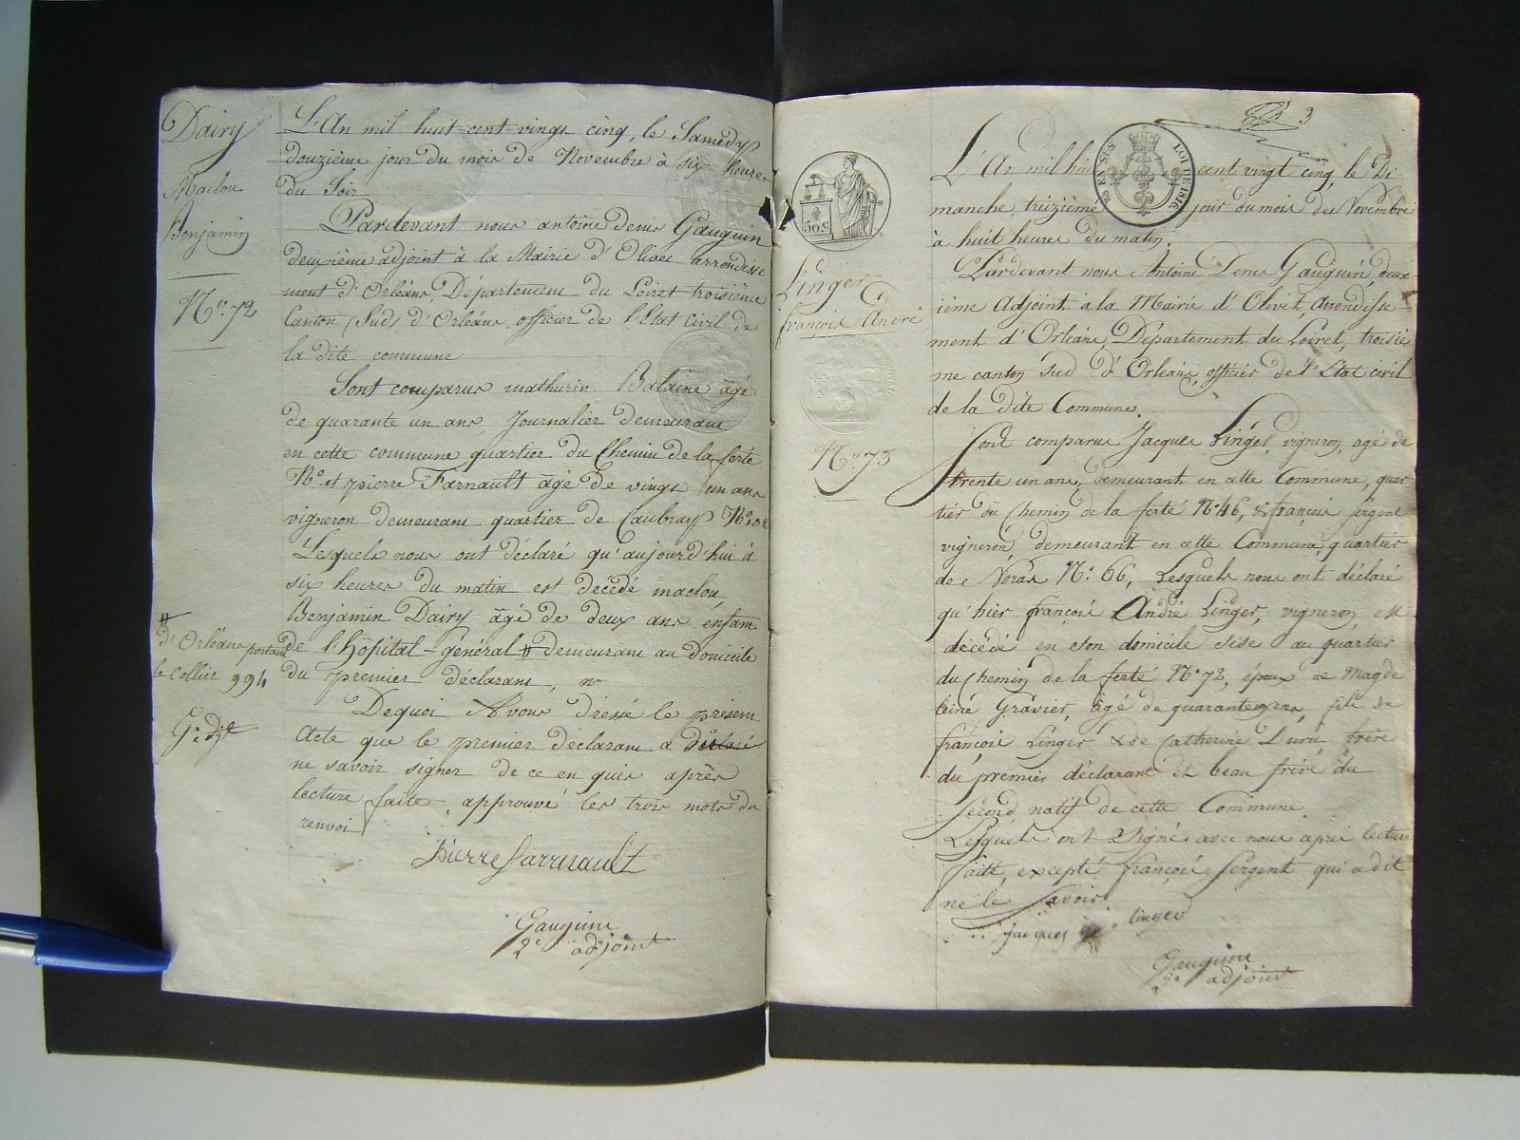 Dairy
Maclou
Benjamin
N° 72
L'An mil huit-cent-vingt cinq, le Samedy
douzième jour du mois de Novembre à six heures
du Soir
Pardevant nous antoine denis Gauguin
deuxième adjoint à la Mairie d'Olivet arrondisse
ment d'Orléans, Département du Loiret troisième
Canton (Sud) d'Orléans, officier de l'Etat Civil de
la dite commune
Sont comparus mathurin Balaine âgé
de quarante un ans, Journalier demeurant
en cette commune quartier du Chemin de la ferté
N° et pierre Farnault âgé de vingt un ans
vigneron demeurant quartier de Caubray N°
Lesquels nous ont déclaré qu'aujourd'hui à
six heures du matin est décédé maclou
Benjamin Dairy âgé de deux ans enfant
de l'hôpital-général # demeurant au domicile
du premier déclarant,
#
d'Orléans portant
le Collier 994
G. d. f
Dequoi Avons dressé le présent
Acte que le premier déclarant a déclaré
ne savoir signer de ce enquis après
lecture faite, approuvé les trois mots du
renvoi
Pierre farnault
Gauguin
2e adjoint
3
EN SUS
LOI DE 1816
50 C
Linger
françois André
N° 73
L'An mil hui cent vingt cinq, le Di
manche, treizième jour du mois de Novembre
à huit heures du matin.
Pardevant nous Antoine Denis Gauguin, deux
ième Adjoint a la Mairie d'Olivet, Arrondisse
ment d'Orléans, Département du Loiret, troisiè
me canton Sud d'Orléans, officier de l'Etat civil
de la dite Commune.
Sont comparus Jacques Linger, vigneron, agé de
trente un ans, demeurant en cette Commune, quar
tier du chemin de la ferté N° 46, & françois Sergent
vigneron, demeurant en cette Commune, quartier
de Noras N° 66, Lesquels nous ont déclaré
qu'hier françois André Linger, vigneron, est
décédé en son domicile sise au quartier
du chemin de la ferté N° 72, époux de Magde
leine Gravier, âgé de quarante ans, fils de
françois Linger & de Catherine frère
du premier déclarant et beau frère du
Second natif de cette Commune.
Lesquels ont Signé avec nous après lecture
faite, excepté françois Sergent qui a dit
ne le Savoir.
jacques linger
Gauguin
2e adjoint